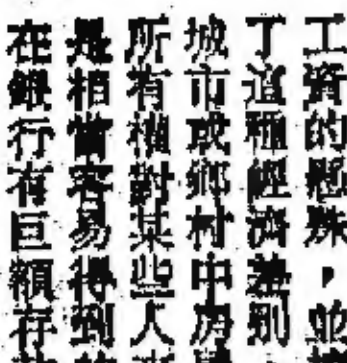 工資的懸殊，並
了這種經濟差別
城市或鄉村中房
所有權對某些人
是相當容易得到
在銀行有巨額存